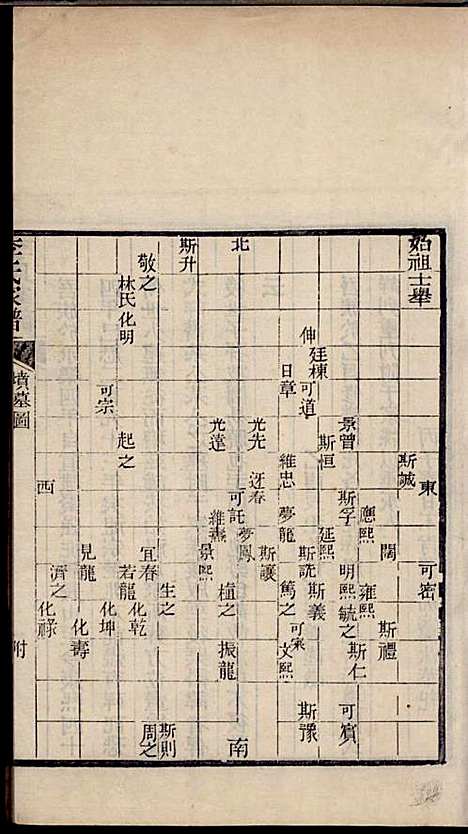 始祖士舉
東
可密
斯誠
闊
雍熙
斯禮
應熙
景曾
斯孚
明熙
毓之
斯仁
可賓
斯恒
延熙
廷棟
伸
可道
斯詵
斯義
斯豫
日章
維忠
夢龍
篤之
可家
文熙
光先
迓春
夢鳳
斯讓
北
可託
南
光遠
維燾
景熙
植之
振龍
斯升
敬之
林氏
化明
可宗
起之
宜春
生之
若龍
化乾
化坤
斯則
周之
西
見龍
濟之
化壽
化祿
氏家譜
墳墓圖
附